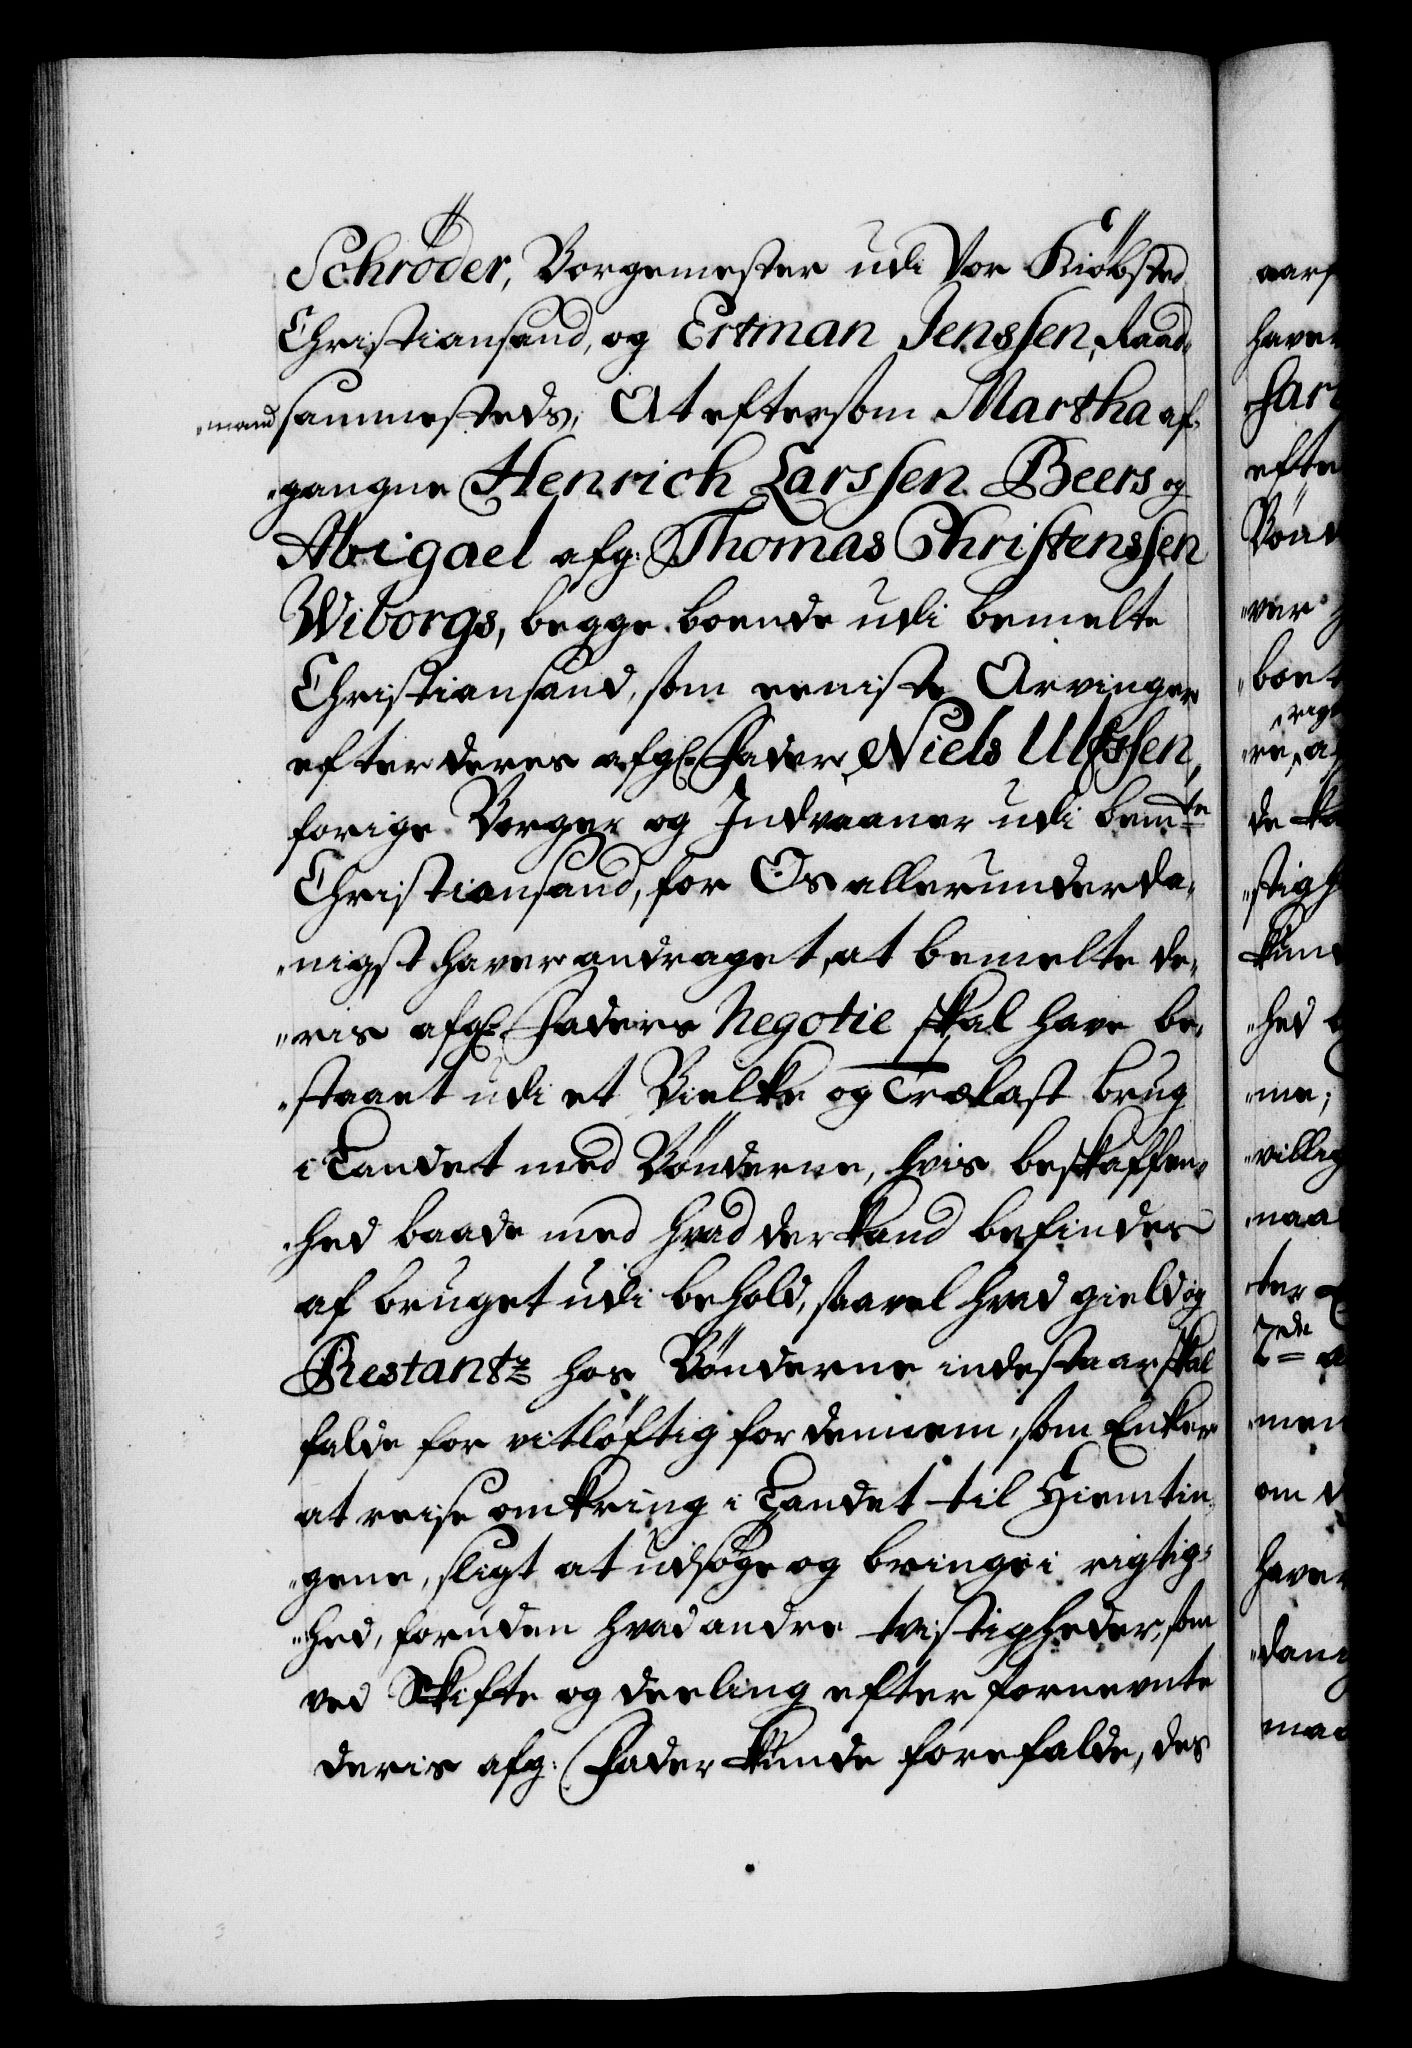 Schrøder, Borgemester udi Vor Kiøbsted
Christiansand, og Ertman Jenssen, Raad-
mand sammesteds, At eftersom Martha af-
gangne Henrich Larssen Beers og
Abigael afg: Thomas Christenssen
Wiborgs, begge boende udi bemelte
Christiansand, som eeniste Arvinger
efter deres afg: Fader Niels Ulfssen,
forige Borger og Indvaaner udi bemte
Christiansand, for Os allerunderda-
nigst haver andraget, at bemelte de-
ris afg: Faders Negotie skal have be-
staaet udi et Bielke og Trælast brug
i Landet med Bønderne, hvis beskaffen-
hed baade med hvad der kand befindes
af bruget udi behold, saavel hvad gield og
Restantz hos Bønderne indestaar skal
falde for vitløftig for dennem, som Enker
at reise omkring i Landet til Hiemtin-
gene, sligt at udsøge og bringe i rigtig-
hed, foruden hvad andre tvistigheder, som
ved Skifte og deeling efter fornevnte
deris afg: Fader kunde forefalde, des